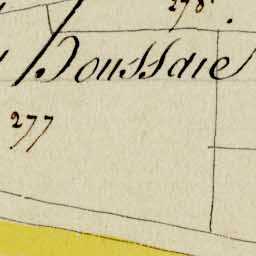 278.
Houssaie
277